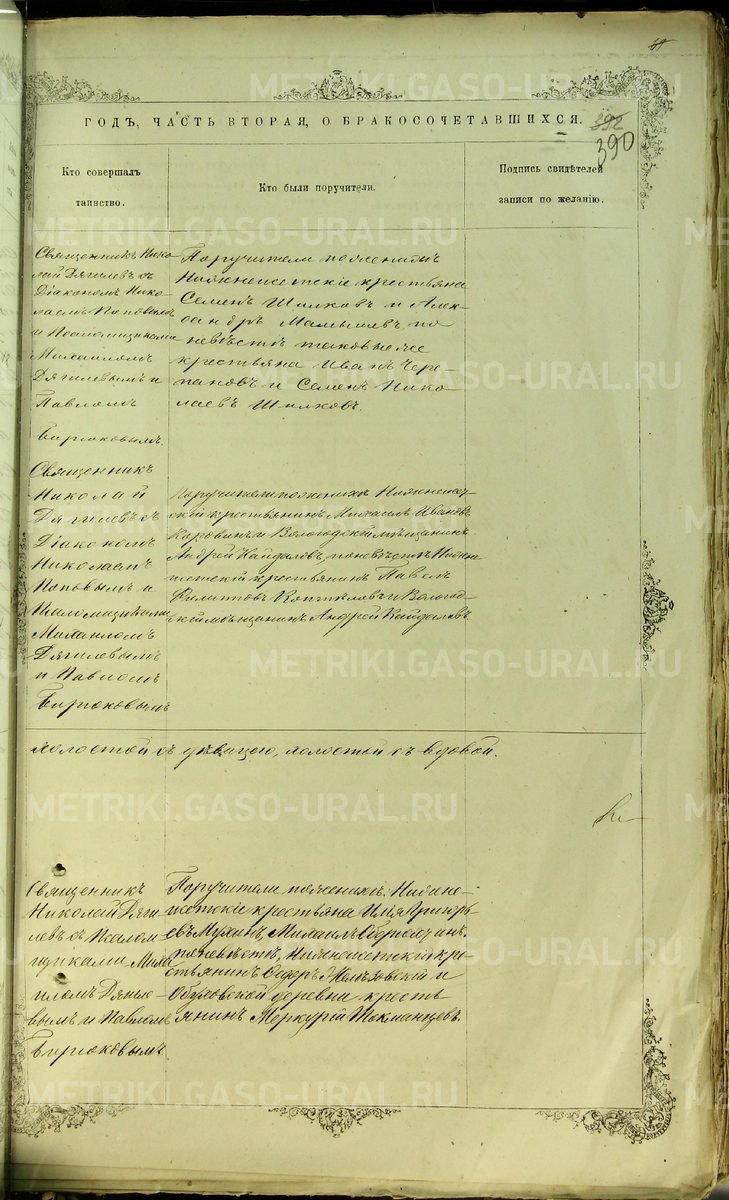 METRIKI.GASO-URAL.RU
ГОДЪ, ЧАСТЬ ВТОРАЯ, О БРАКОСОЧЕТАВШИХСЯ.
392
390
Кто совершалъ
таинство.
Кто были поручители.
Подпись свидѣтелей
записи по желанію.
Священникъ Нико-
лай Дягилевъ съ
Діакономъ Нико-
лаемъ Поповымъ
и Псаломщиками
Михаиломъ
Дягилевымъ и
Павломъ
Бирюковымъ.
Поручители по женихѣ
Нижнеисетскіе крестьяна
Семенъ Шилковъ и Алек-
сандръ Малышевъ, по
невѣстѣ таковые же
крестьяна Иванъ Чере-
пановъ и Семенъ Нико-
лаевъ Шилковъ.
Священникъ
Николай
Дягилевъ съ
Діакономъ
Николаемъ
Поповымъ и
Псаломщиками
Михаиломъ
Дягилевымъ
и Павломъ
Бирюковымъ
Поручители по женихѣ Нижнеисет-
скій крестьянинъ Михаилъ Ивановъ
Коровинъ и Вологодскій мѣщанинъ
Андрей Кайдаловъ, по невѣстѣ Нижне-
исетскій крестьянинъ Павелъ
Филиповъ и Волого-
скій мѣщанинъ Андрей Кайдаловъ
холостой съ дѣвицою, холостый съ вдовой.
Священникъ
Николай Дяги-
левъ съ Псалом-
щиками Миха-
иломъ Дягиле-
вымъ и Павломъ
Бирюковымъ.
Поручители по женихѣ: Нижне-
исетскіе крестьяна Илья Григорь-
евъ Мухинъ, Михаилъ
по невѣстѣ, Нижнеисетскій кре-
стьянинъ Ѳедоръ и
Обуховской деревни кресть
янинъ Меркурій Токманцевъ.